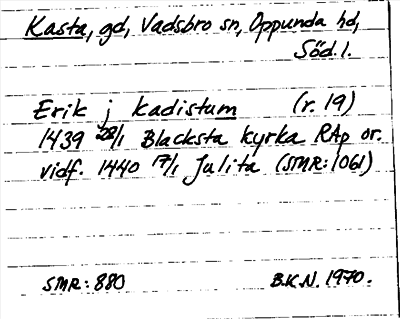 Kasta, gd, Vadsbro sn, Oppunda hd,
Söd.l.
Erik j kadistum (r. 19)
1439 28/1 Blacksta kyrka RAp or.
vidf. 1440 17/1 Julita (SMR:1061)
SMR: 880 B.K.N. 1970.